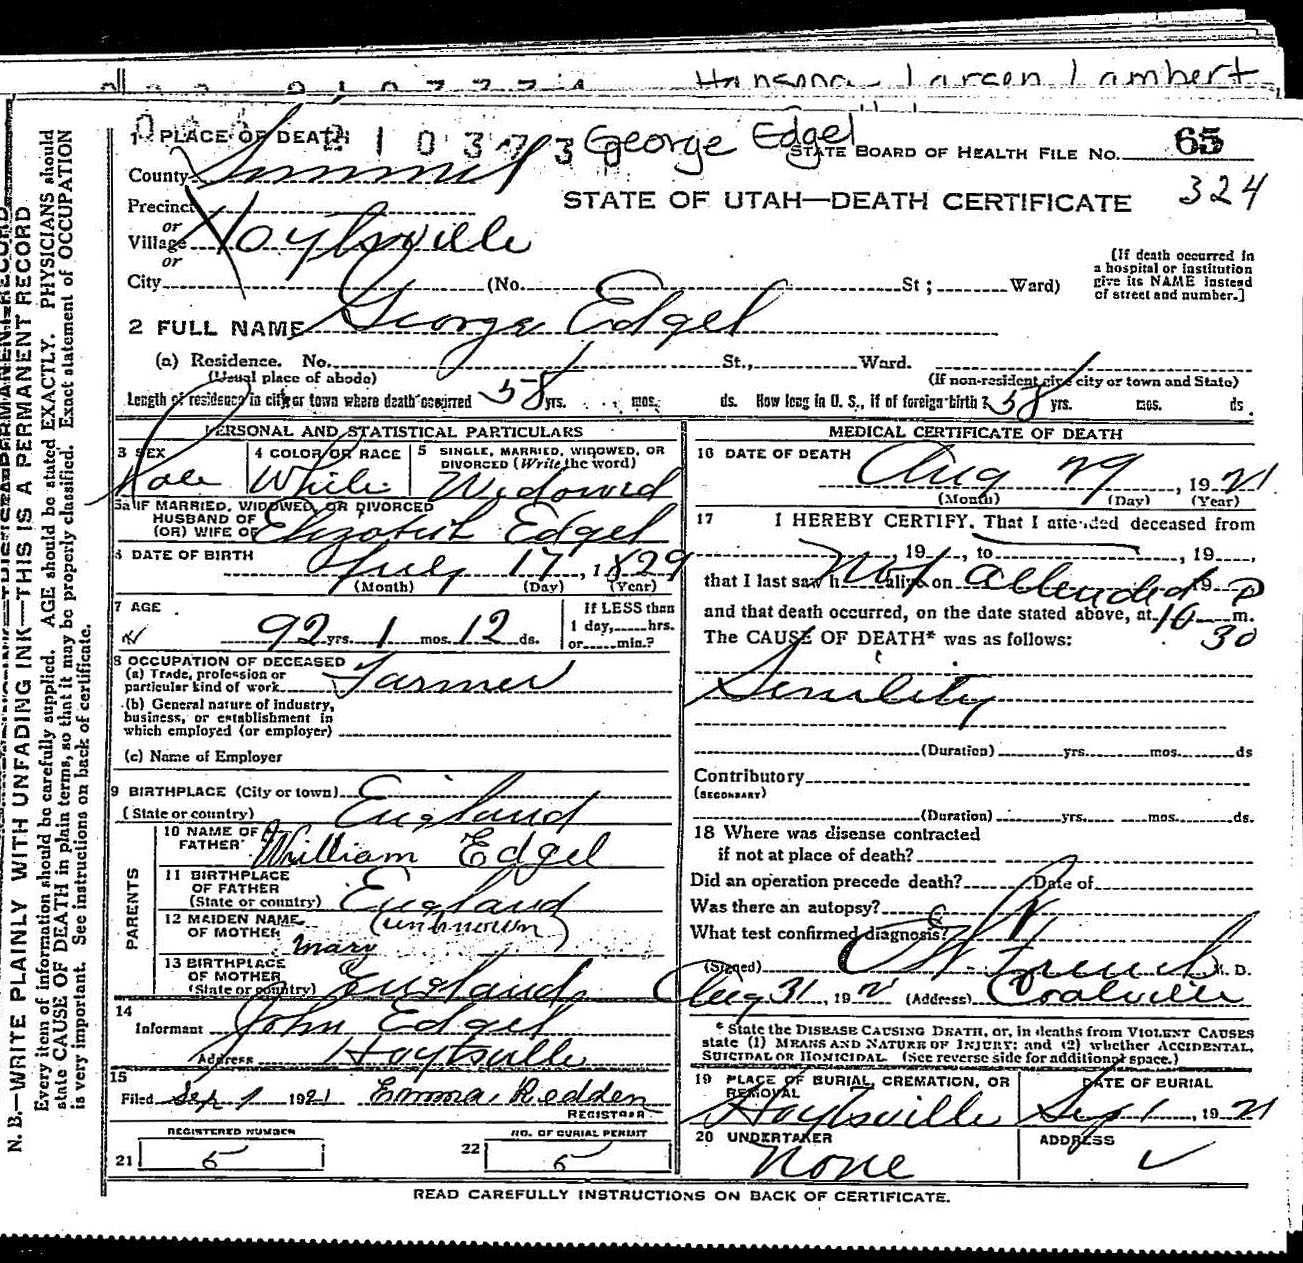 Hansena Larsen Lambert
1 PLACE OF DEATH
2 1 0 3 7 3 0 George Edgel
STATE BOARD OF HEALTH FILE NO. 65
324
County Summit
STATE OF UTAH—DEATH CERTIFICATE
Precinct
or
Village Hoytsville
or
City (No. St ; Ward)
[If death occurred in
a hospital or institution
give its NAME instead
of street and number.]
2 FULL NAME George Edgel
(a) Residence. No. St., Ward.
(Usual place of abode) (If non-resident give city or town and State)
Length of residence in city or town where death occurred 58 yrs. mos. ds. How long in U. S., if of foreign birth ? 58 yrs. mos. ds.
PERSONAL AND STATISTICAL PARTICULARS
3 SEX
Male
4 COLOR OR RACE
White
5 SINGLE, MARRIED, WIDOWED, OR
DIVORCED (Write the word)
Widowed
5a IF MARRIED, WIDOWED, OR DIVORCED
HUSBAND OF
(OR) WIFE OF Elizabeth Edgel
6 DATE OF BIRTH
July 17, 1829
(Month) (Day) (Year)
7 AGE
92 yrs. 1 mos. 12 ds.
If LESS than
1 day, hrs.
or min.?
8 OCCUPATION OF DECEASED
(a) Trade, profession or
particular kind of work Farmer
(b) General nature of industry,
business, or establishment in
which employed (or employer)
(c) Name of Employer
9 BIRTHPLACE (City or town)
(State or country) England
PARENTS
10 NAME OF
FATHER William Edgel
11 BIRTHPLACE
OF FATHER
(State or country) England
12 MAIDEN NAME
OF MOTHER Mary (unknown)
13 BIRTHPLACE
OF MOTHER
(State or country) England
14
Informant John Edgel
Address Hoytsville
15
Filed Sep 1 1921 Emma Redden
REGISTRAR
REGISTERED NUMBER
21 5
NO. OF BURIAL PERMIT
22 5
MEDICAL CERTIFICATE OF DEATH
16 DATE OF DEATH
Aug 29, 1921
(Month) (Day) (Year)
17 I HEREBY CERTIFY, That I attended deceased from
, 19 , to , 19 ,
that I last saw h alive on 19
Not attended
and that death occurred, on the date stated above, at 10 30 P m.
The CAUSE OF DEATH* was as follows:
Senility
(Duration) yrs. mos. ds
Contributory
(SECONDARY)
(Duration) yrs. mos. ds.
18 Where was disease contracted
if not at place of death?
Did an operation precede death? Date of
Was there an autopsy?
What test confirmed diagnosis?
(Signed) M. D.
Aug 31, 1921 (Address) Coalville
* State the DISEASE CAUSING DEATH, or, in deaths from VIOLENT CAUSES
state (1) MEANS AND NATURE OF INJURY; and (2) whether ACCIDENTAL,
SUICIDAL OR HOMICIDAL. (See reverse side for additional space.)
19 PLACE OF BURIAL, CREMATION, OR
REMOVAL
Hoytsville
DATE OF BURIAL
Sep 1, 1921
20 UNDERTAKER
None
ADDRESS
READ CAREFULLY INSTRUCTIONS ON BACK OF CERTIFICATE.
N. B.—WRITE PLAINLY WITH UNFADING INK—THIS IS A PERMANENT RECORD
Every item of information should be carefully supplied. AGE should be stated EXACTLY. PHYSICIANS should
state CAUSE OF DEATH in plain terms, so that it may be properly classified. Exact statement of OCCUPATION
is very important. See instructions on back of certificate.